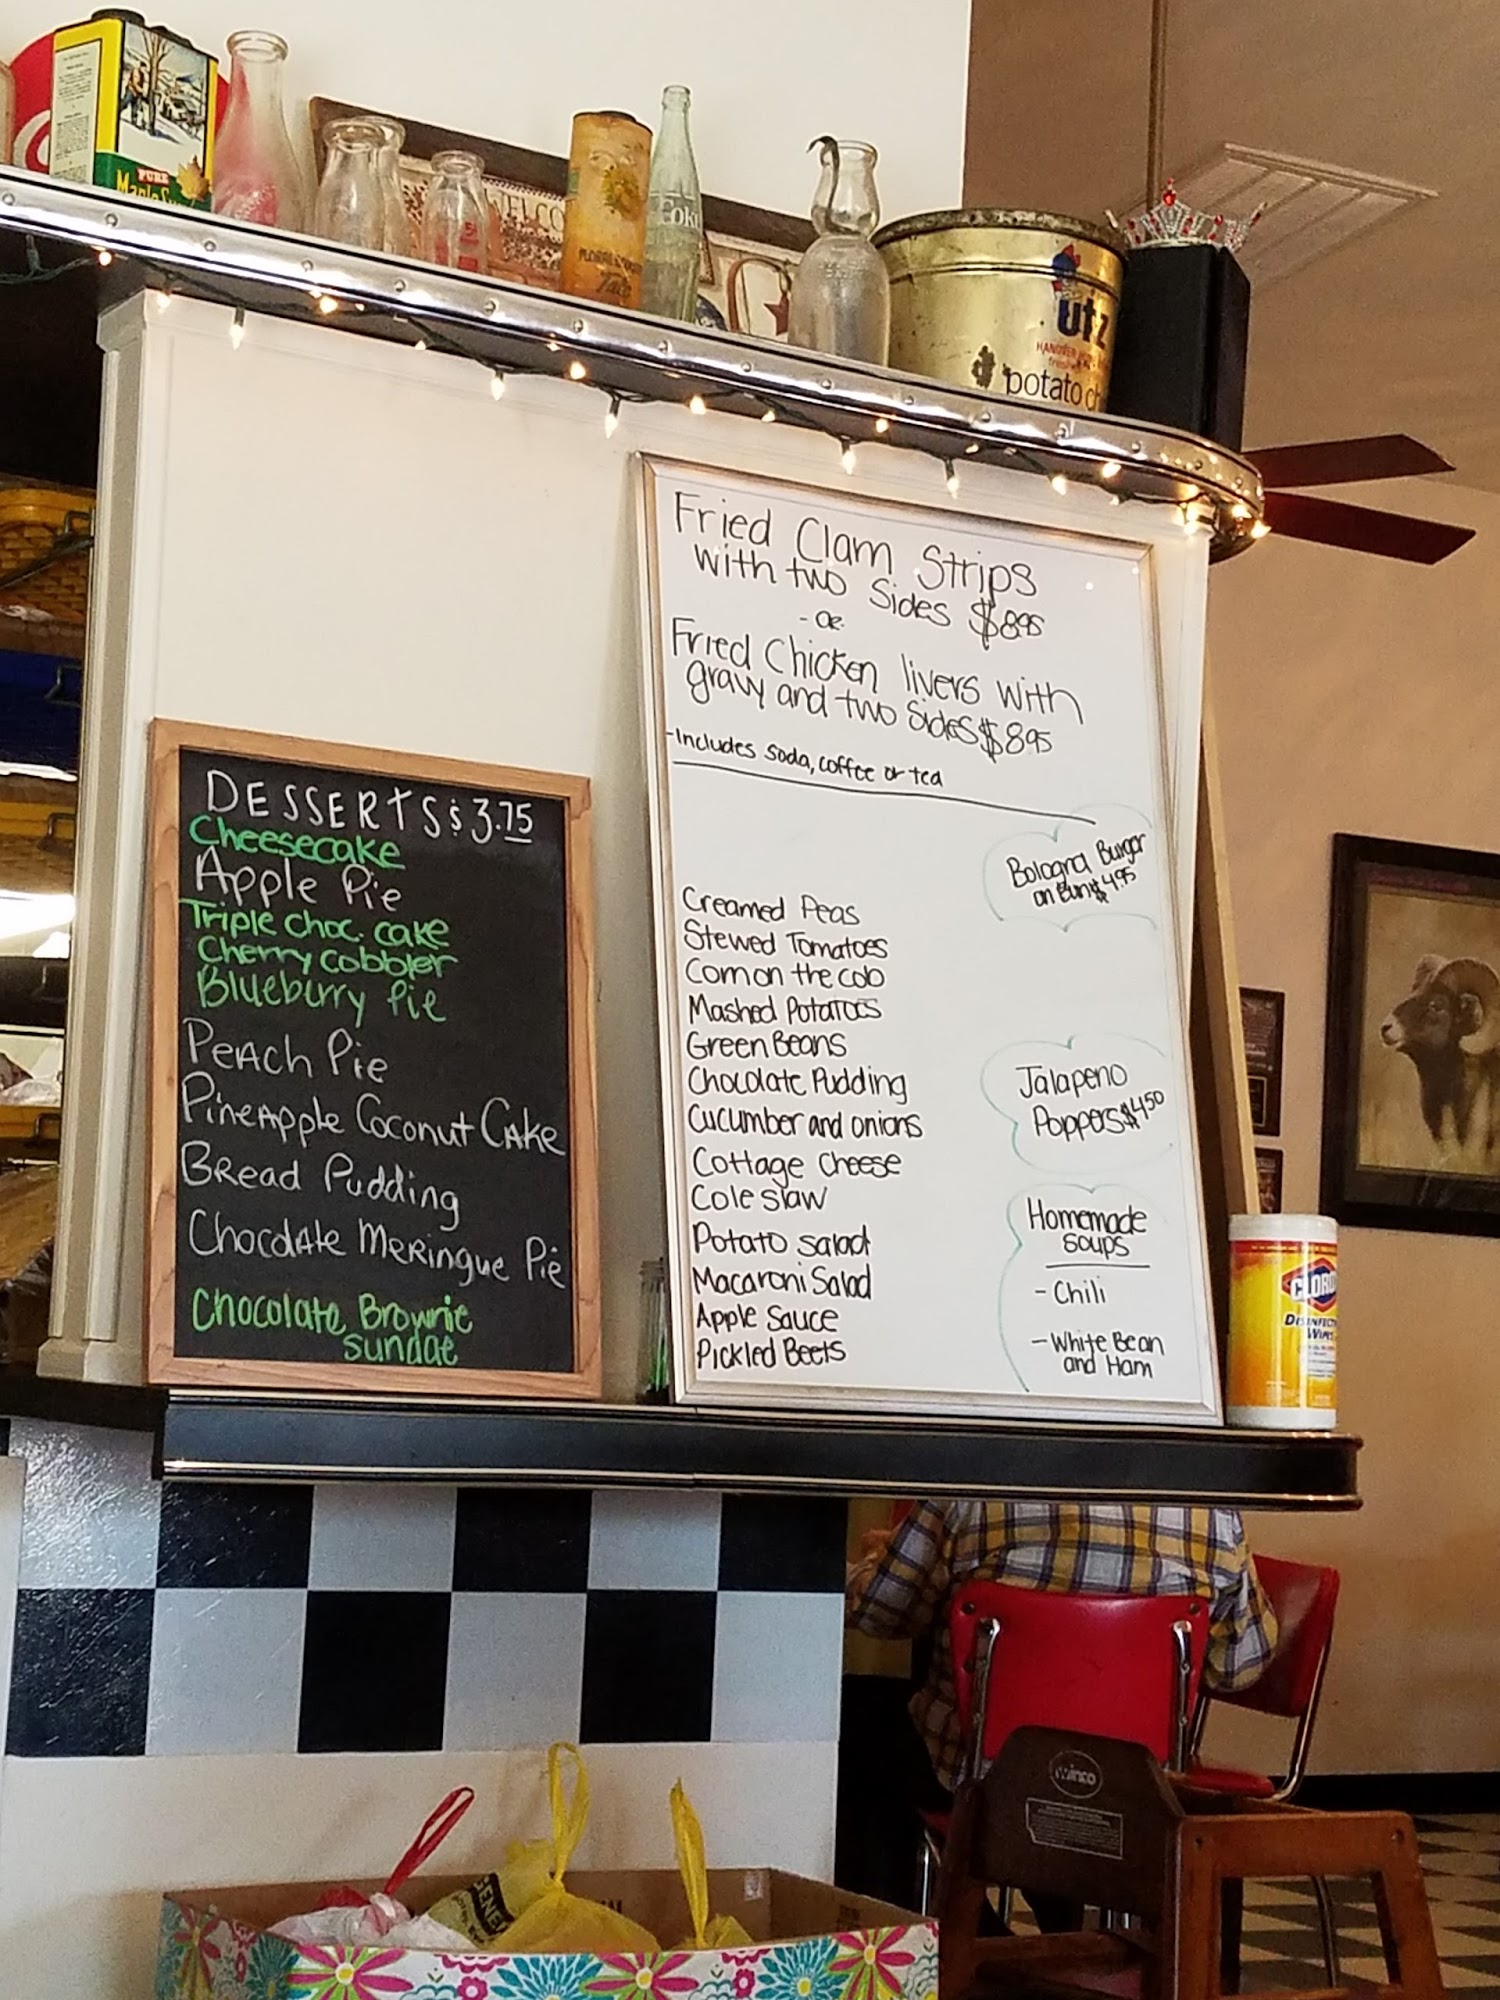 PURE
WELCO
Coke
Talc
utz
potato ch
Fried Clam Strips
with two sides $8.95
-OR-
Fried Chicken livers with
gravy and two sides $8.95
-Includes soda, coffee or tea
Bologna Burger
on Bun $4.95
Creamed Peas
Stewed Tomatoes
Corn on the cob
Mashed Potatoes
Green Beans
Chocolate Pudding
Cucumber and onions
Cottage Cheese
Cole slaw
Potato salad
Macaroni Salad
Apple Sauce
Pickled Beets
Jalapeno
Poppers $4.50
Homemade
Soups
- Chili
- White Bean
and Ham
DESSERTS $3.75
Cheesecake
Apple Pie
Triple choc. cake
Cherry cobbler
Blueberry Pie
Peach Pie
Pineapple Coconut Cake
Bread Pudding
Chocolate Meringue Pie
Chocolate Brownie
sundae
CLORO
DISINFECTI
WIPES
winco